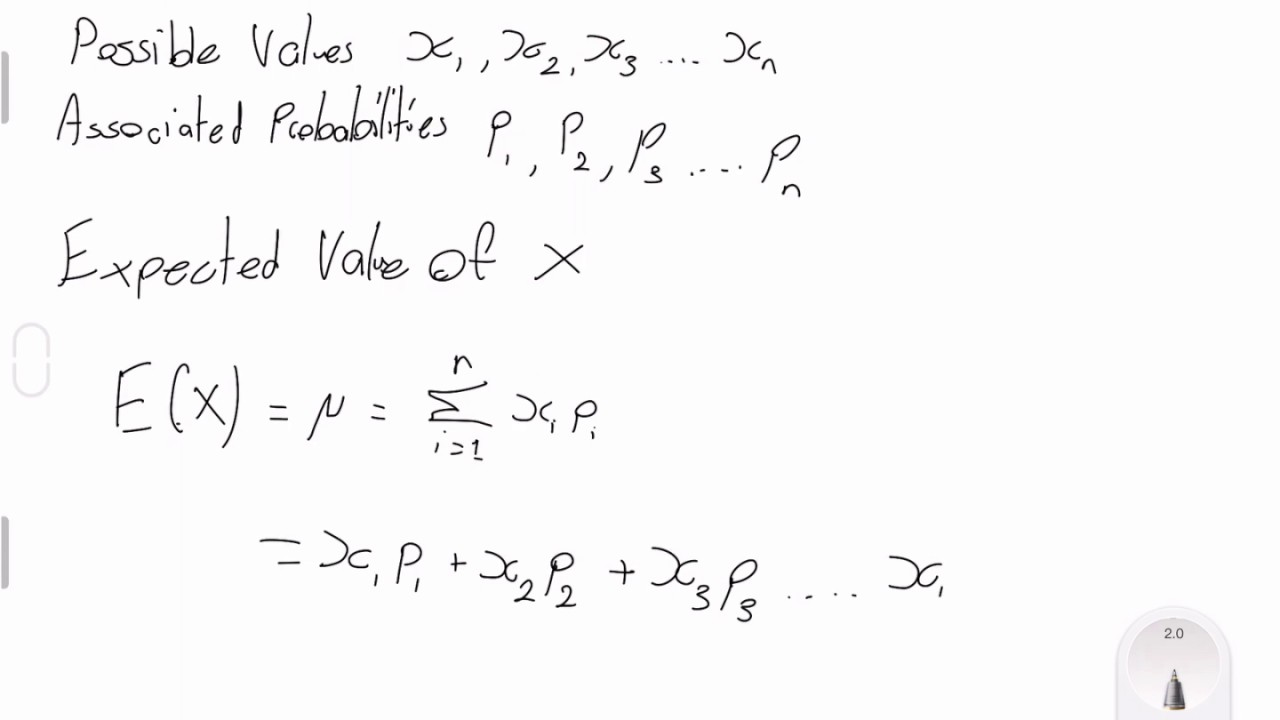 Possible Values x₁, x₂, x₃ .... xₙ
Associated Probabilities P₁, P₂, P₃ ..... Pₙ
Expected Value of X
E(X) = μ = Σⁿᵢ₌₁ xᵢ pᵢ
= x₁P₁ + x₂P₂ + x₃P₃ ..... x₁
2.0